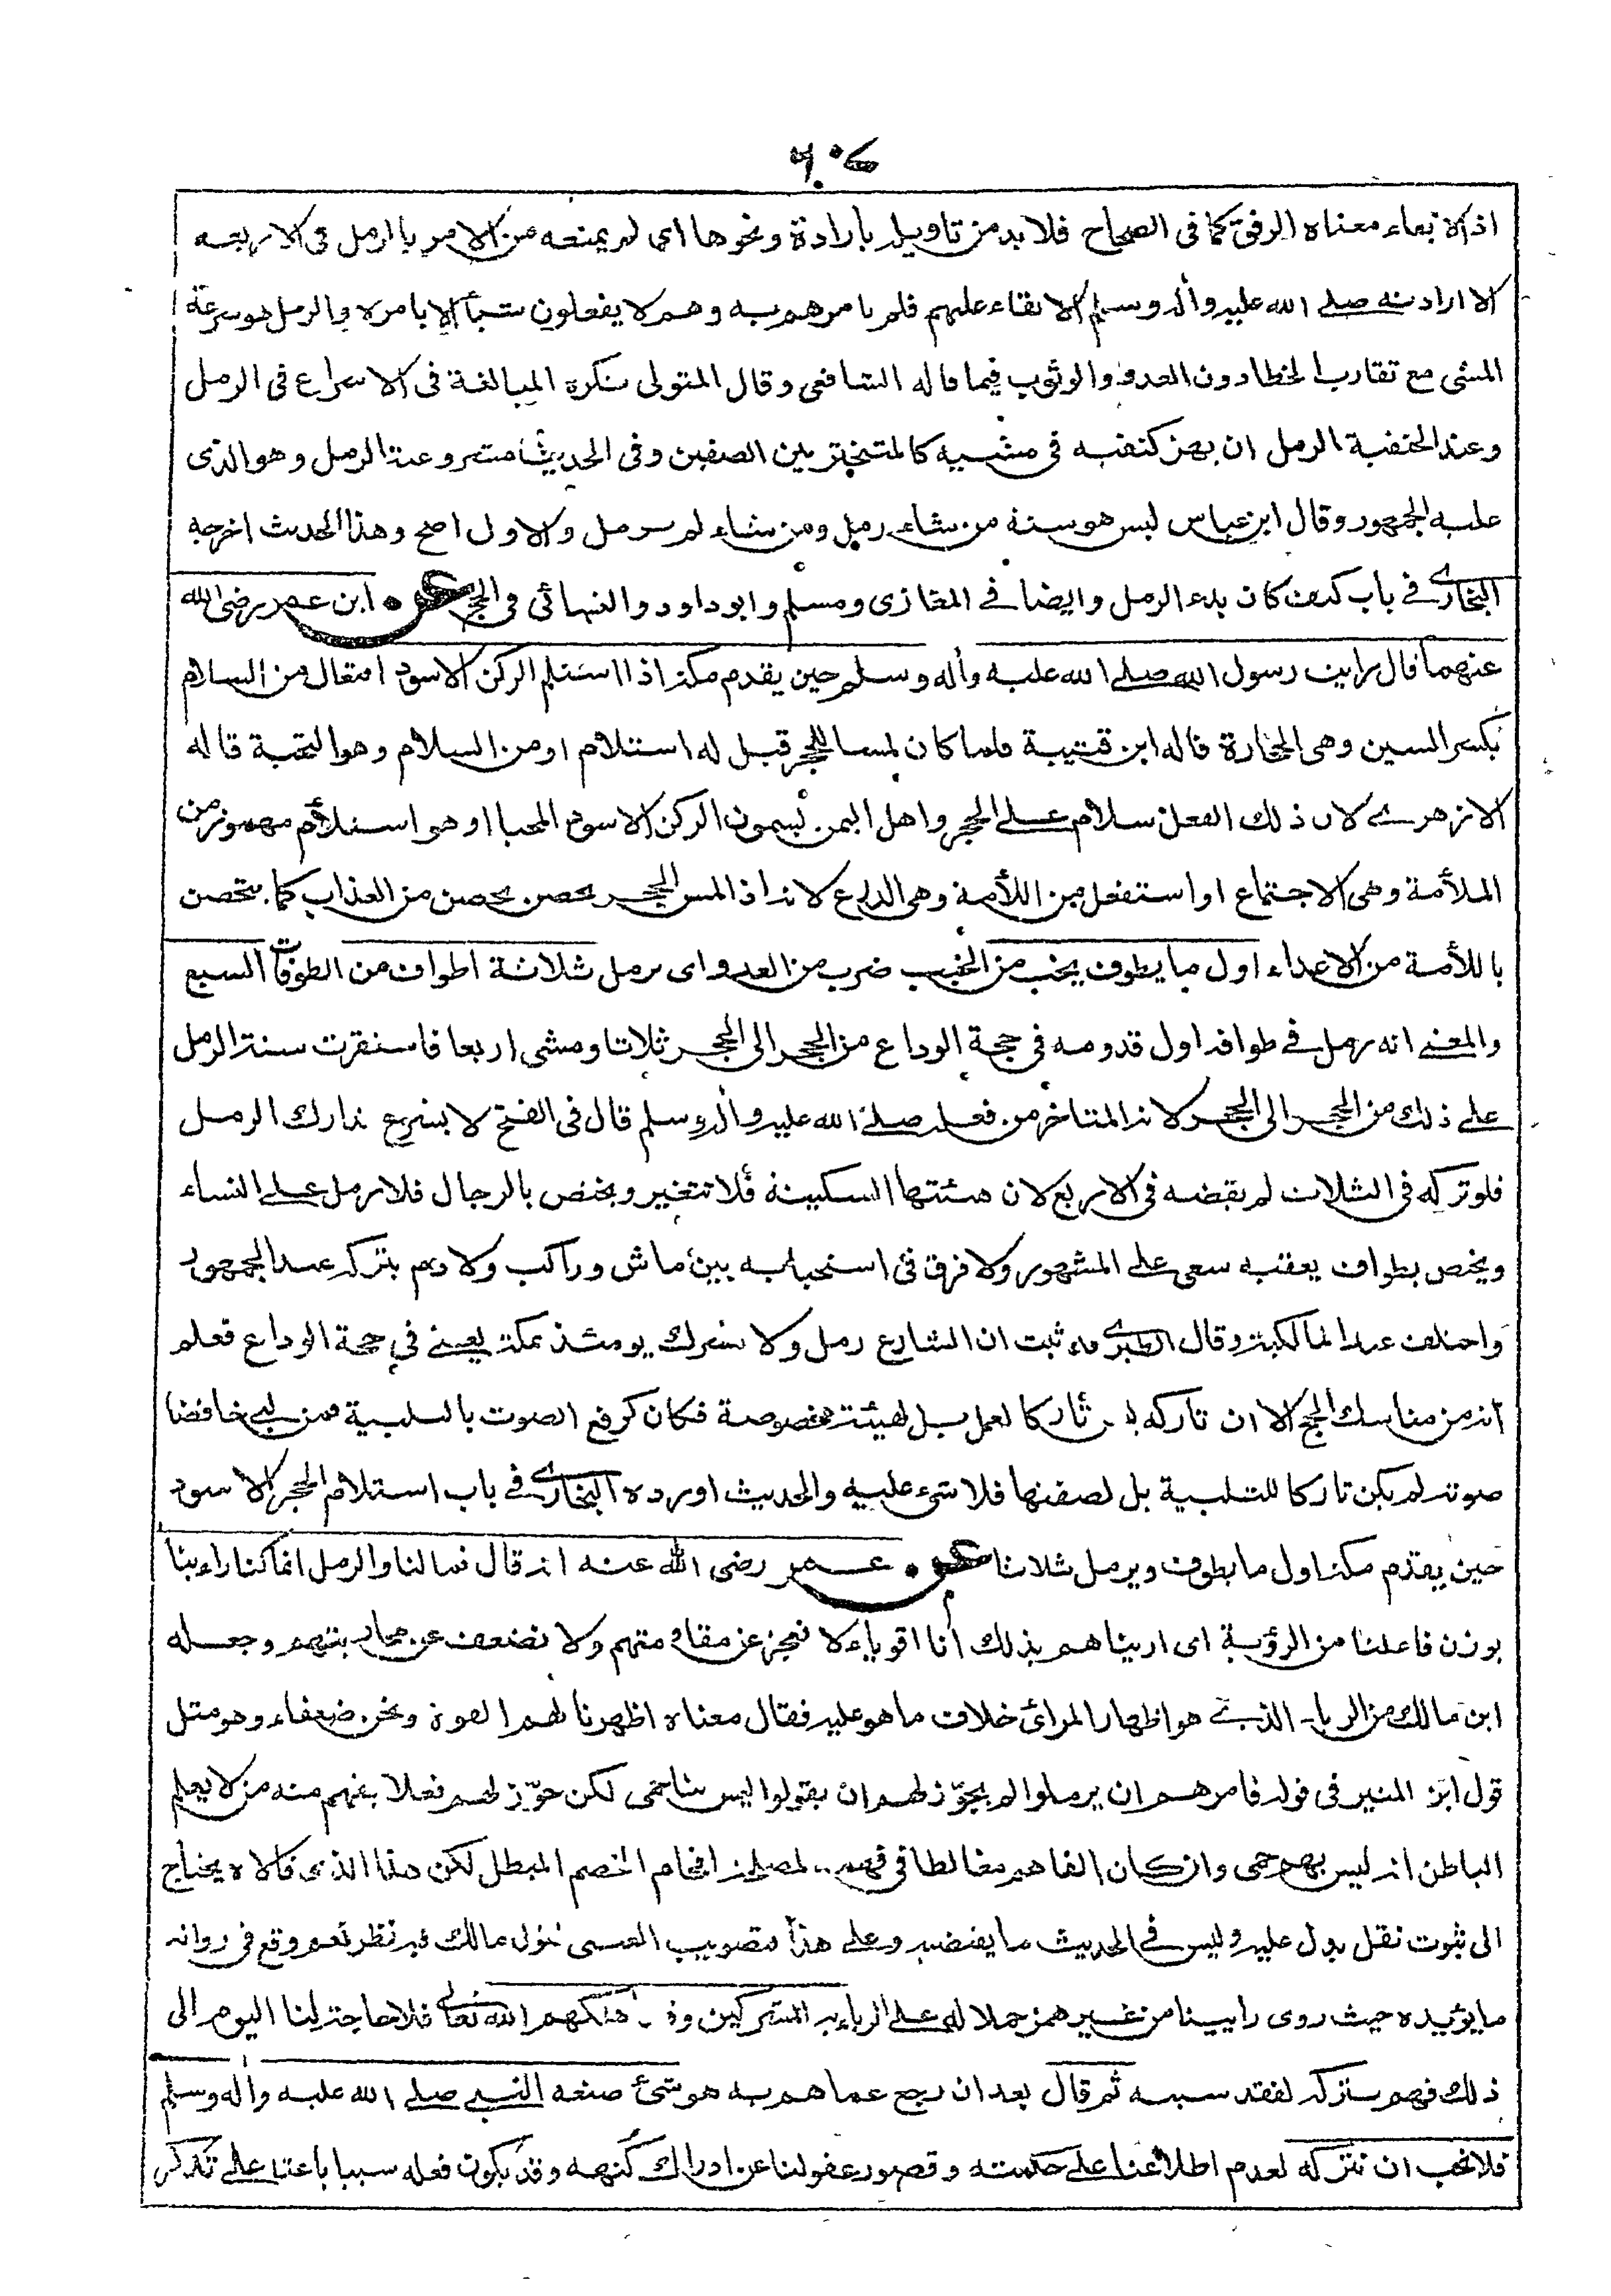 ٦٠٧
اذ الابقاء معناه الرفق كما فى الصحاح فلا بد من تاويله بارادة ونحوها اى لم يمنعه من الامر بالرمل فى الاربعه
الا ارادته صلى الله عليه وآله وسلم الابقاء عليهم فلم يامرهم به وهم لا يفعلون شيأ الا بامره والرمل هو سرعة
المشى مع تقارب الخطا دون العدو والوثوب فيما قاله الشافعى وقال المتولى تكره المبالغة فى الاسراع فى الرمل
وعند الحنفية الرمل ان يهز كتفيه فى مشيه كالمتبختر بين الصفين وفى الحديث مشروعية الرمل وهو الذى
عليه الجمهور وقال ابن عباس ليس هو سنة من شاء رمل ومن شاء لم يرمل والاول اصح وهذا الحديث اخرجه
البخارى فى باب كيف كان بدء الرمل وايضا فى المغازى ومسلم وابو داود والنسائى فى الحج عن ابن عمر رضى الله
عنهما قال رايت رسول الله صلى الله عليه وأله وسلم حين يقدم مكة اذا استلم الركن الاسود افتعال من السلام
بكسر السين وهى الحجارة قاله ابن قتيبة فلما كان لمسا للحجر قيل له استلام او من السلام وهو التحية قاله
الازهرى لان ذلك الفعل سلام على الحجر واهل اليمن يسمون الركن الاسود المحيا او هو استلأم مهموز من
الملأمة وهى الاجتماع او استفعل من اللأمة وهى الدرع لانه اذا لمس الحجر تحصن بحصن من العذاب كما يتحصن
باللأمة من الاعداء اول ما يطوف يخب من الخبب ضرب من العدو اى يرمل ثلاثة اطواف من الطوفات السبع
والمعنى انه رمل فى طوافه اول قدومه فى حجة الوداع من الحجر الى الحجر ثلاثا ومشى اربعا فاستقرت سنة الرمل
على ذلك من الحجر الى الحجر لانه المتاخر من فعله صلى الله عليه وآله وسلم قال فى الفتح لا يشرع تدارك الرمل
فلو تركه فى الثلاث لم يقضه فى الاربع لان هيئتها السكينة فلا تتغير ويختص بالرجال فلا رمل على النساء
ويختص بطواف يعقبه سعى على المشهور ولا فرق فى استحبابه بين ماش وراكب ولا دم بتركه عند الجمهور
واختلف عند المالكية وقال الطبرى قد ثبت ان الشارع رمل ولا مشرك يومئذ بمكة يعنى فى حجة الوداع فعلم
انه من مناسك الحج الا ان تاركه ليس تاركا لعمل بل لهيئة مخصوصة فكان كرفع الصوت بالتلبية فمن لبى خافضا
صوته لم يكن تاركا للتلبية بل لصفتها فلا شىء عليه والحديث اورده البخارى فى باب استلام الحجر الاسود
حين يقدم مكة اول ما يطوف ويرمل ثلاثا عن عمر رضى الله عنه انه قال فما لنا والرمل انما كنا راءينا
بوزن فاعلنا من الرؤية اى اريناهم بذلك أنا اقوياء لا نعجز عن مقاومتهم ولا نضعف عن محاربتهم وجعله
ابن مالك من الرياء الذى هو اظهار المرائ خلاف ما هو عليه فقال معناه اظهرنا لهم القوة ونحن ضعفاء وهو مثل
قول ابن المنير فى قوله فامرهم ان يرملوا لم يجوّز لهم ان يقولوا ليس بنا حمى لكن جوّز لهم فعلا يفهم منه من لا يعلم
الباطن انه ليس بهم حمى وان كان الفاهم مغالطا فى فهمه لمصلحة افحام الخصم المبطل لكن هذا الذى قالاه يحتاج
الى ثبوت نقل يدل عليه وليس فى الحديث ما يقتضيه وعلى هذا فتصويب العينى قول مالك فيه نظر نعم وقع فى رواية
ما يؤيده حيث روى رايينا من غير همز حملا له على الرياء به المشركين وقد اهلكهم الله تعالى فلا حاجة لنا اليوم الى
ذلك فهم بتركه لفقد سببه ثم قال بعد ان رجع عما هم به هو شئ صنعه النبى صلى الله عليه وأله وسلم
فلا نحب ان نتركه لعدم اطلاعنا على حكمته وقصور عقولنا عن ادراك كنهه وقد يكون فعله سببا باعثا على تذكر